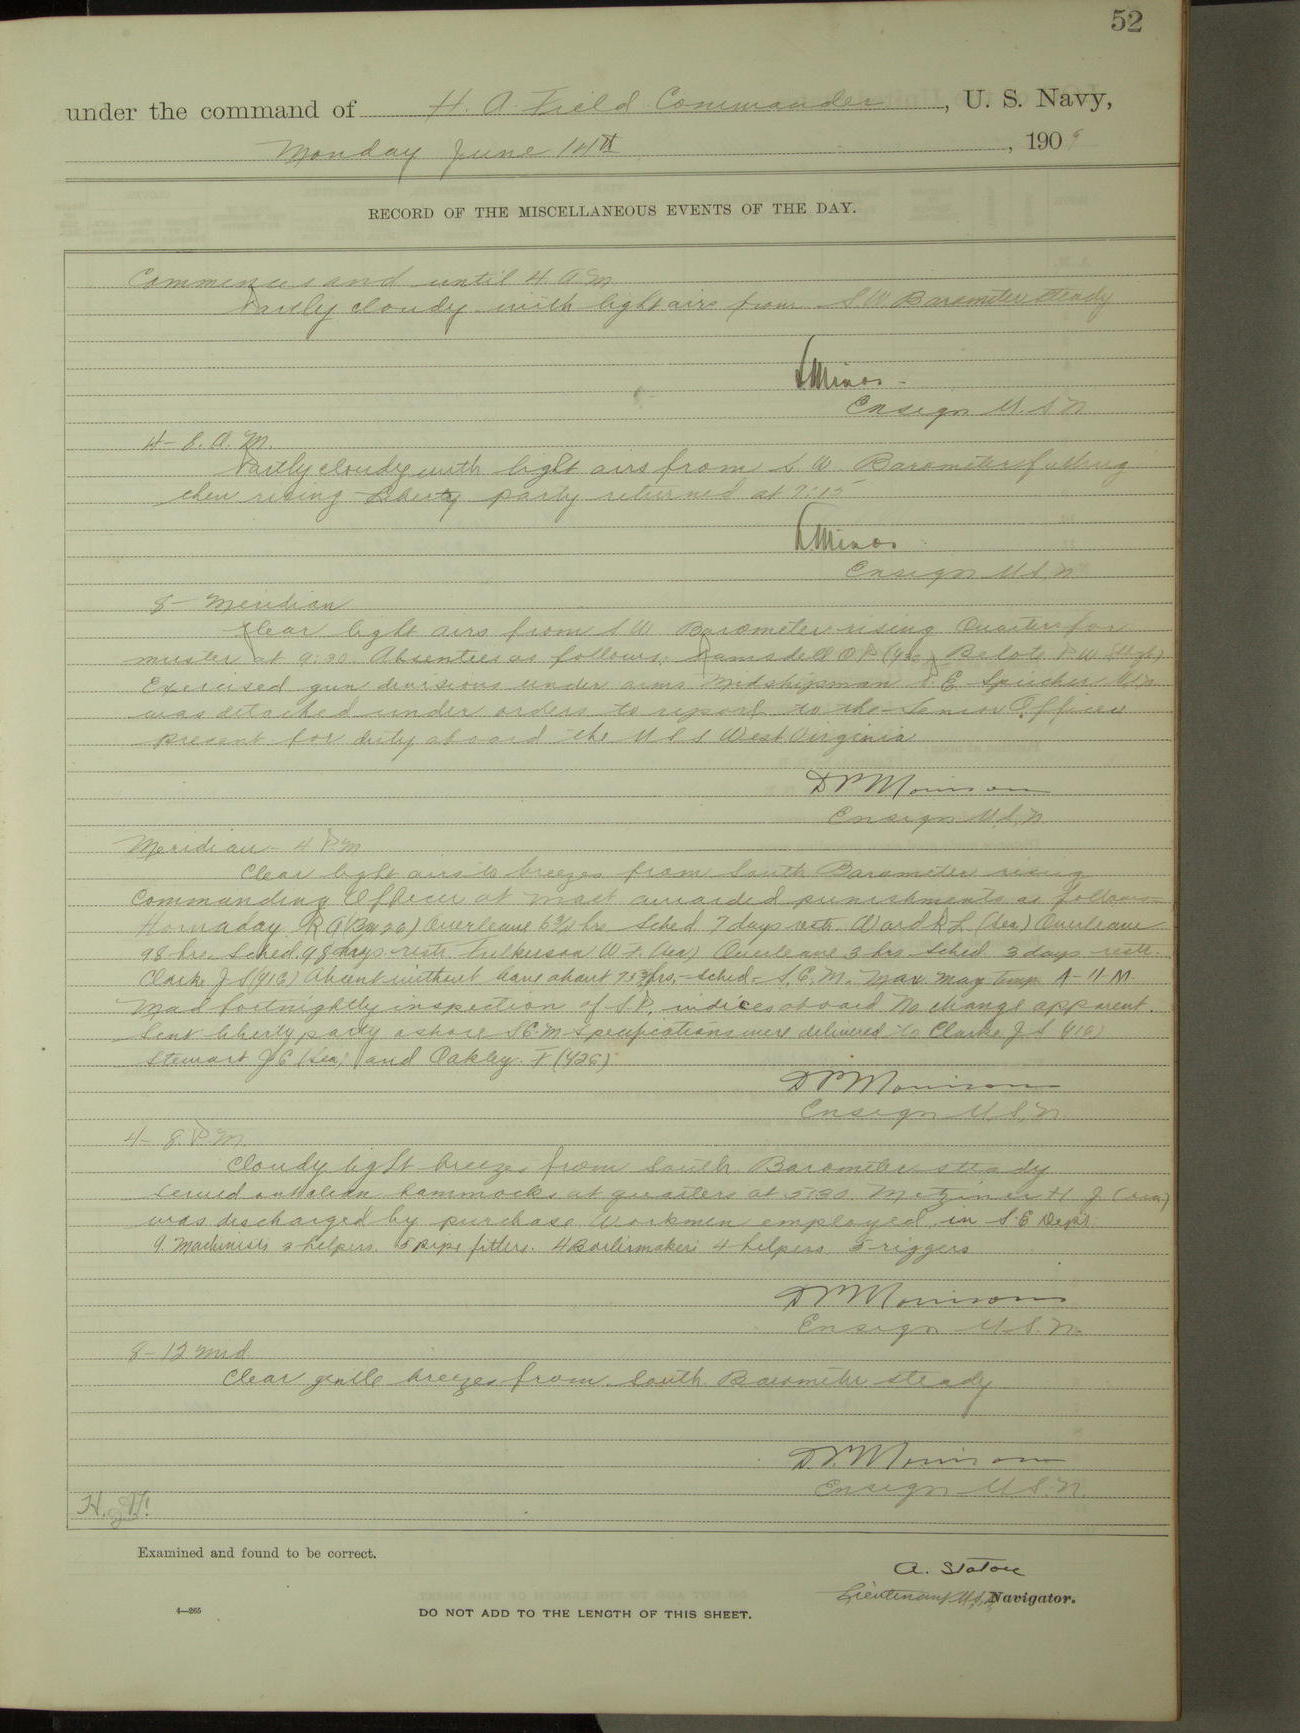 52
under the command of H. A. Field Commander, U. S. Navy,
Monday June 14th, 1909
RECORD OF THE MISCELLANEOUS EVENTS OF THE DAY.
Commences and until 4 A M
Partly cloudy with light airs from S W Barometer steady
Ensign U. S. N
4 - 8. A. M.
Partly cloudy with light airs from S W Barometer falling
then rising Liberty party returned at 7:15
Ensign U S. N
8 - Meridian
Clear light airs from S W Barometer rising Quarters for
muster at 9:30. Absentees as follows: Ramsdell O P Belote P W
Exercised gun divisions under arms Midshipman E Speicher U S n
was detached under orders to report to the Senior Officer
present for duty aboard the U S S West Virginia
Ensign U. S. N.
Meridian - 4 P M
Clear light airs to breezes from South Barometer rising
Commanding Officer at mast awarded punishments as follows
Hornaday R A Overleave 6 3/4 hrs Sched 7 days restr. Ward R L (Sea) Overleave
98 hrs. Sched. 98 days restr. Fulkerson W F. (Sea) Overleave 3 hrs Sched 3 days restr.
Clark J S (416) Absent without leave about hrs. Sched. S. C. M. Max Mag temp A-11 M
Mad fortnightly inspection of S. P. indices aboard No change apparent.
Sent liberty party ashore S C M Specifications were delivered to Clark J S (416)
Stewart J C (Sea) and Oakley F (426)
D P Morrison
Ensign U. S. N.
4 - 8. P. M.
Cloudy light breezes from South. Barometer steady
Served out clean hammocks at quarters at 5:30. H J (Sea)
was discharged by purchase Workmen employed in S. E Dept.
9 Machinists 2 helpers. 5 pipe fitters. 4 Boilermakers 4 helpers 5 riggers
D P Morrison
Ensign U. S. N.
8 - 12 Mid
Clear gentle breezes from South Barometer steady
D. P. Morrison
Ensign U S. N.
Examined and found to be correct.
Lieutenant U.S.N. Navigator.
4—265
DO NOT ADD TO THE LENGTH OF THIS SHEET.